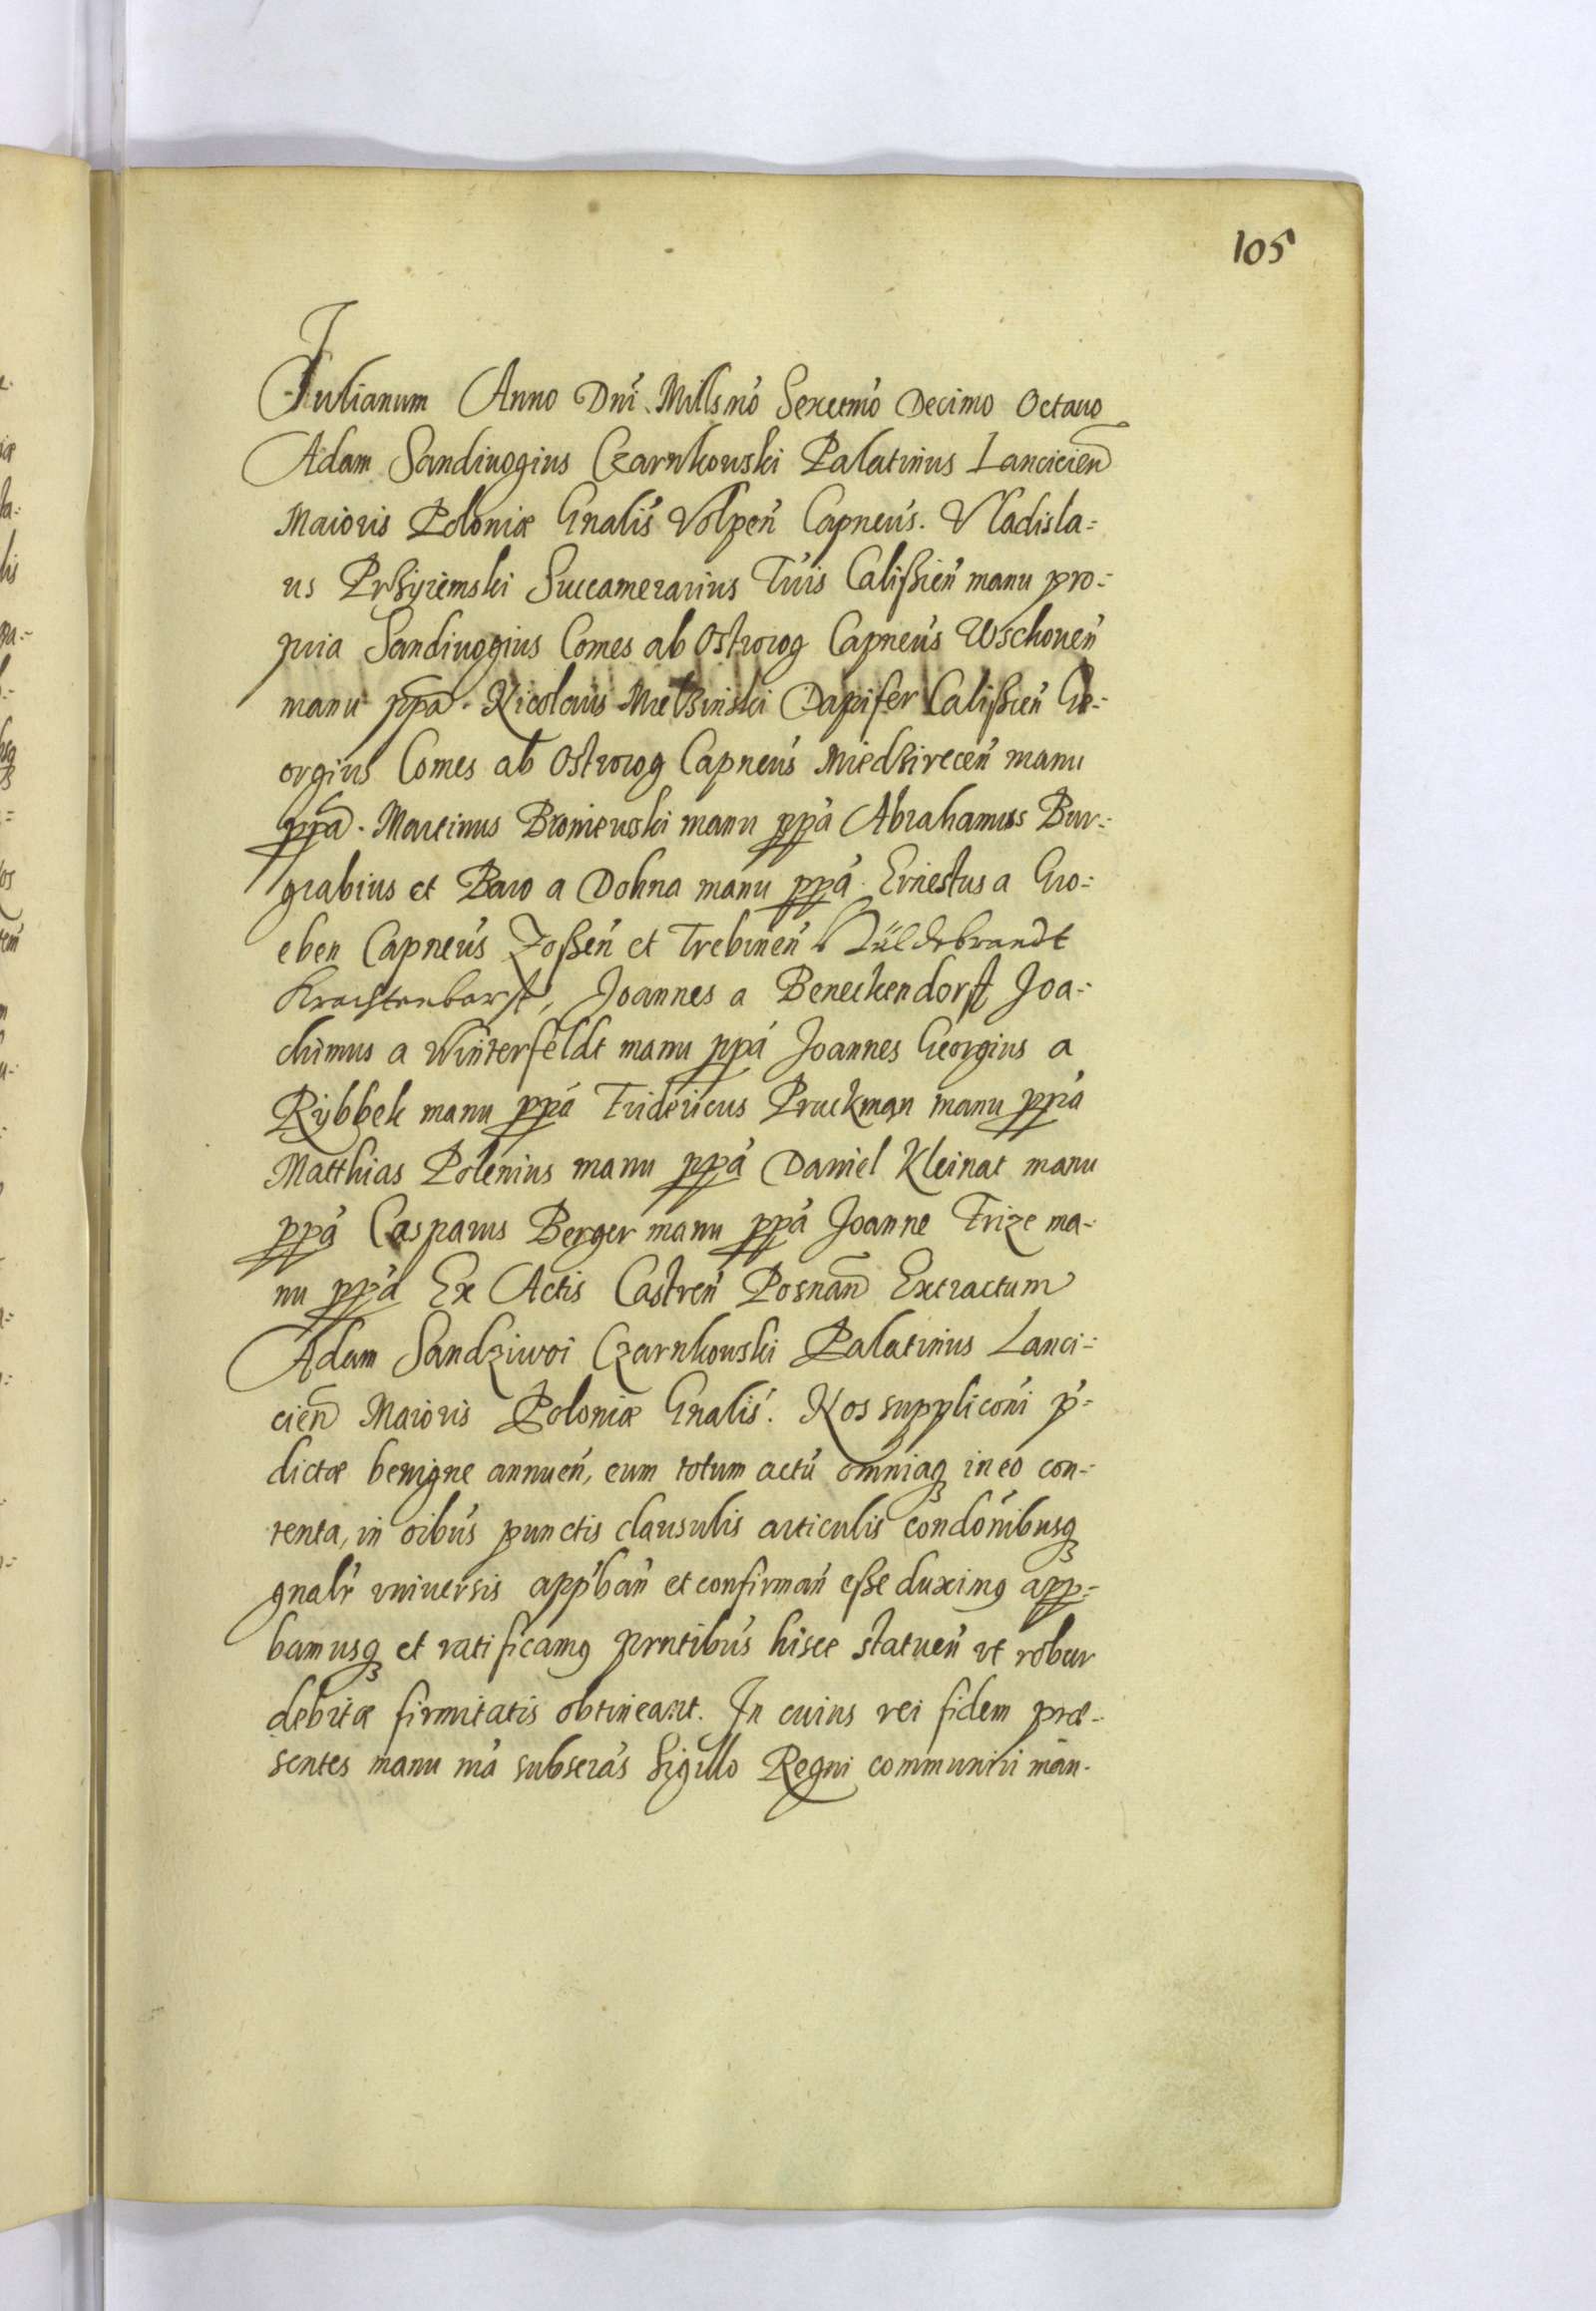 105
Julianum Anno Dni. Millsmo Sexcemo Decimo Octauo
Adam Sandiuogius Czarnkowski Palatinus Lancicien
Maioris Poloniæ Gnalis Volpen Capneus. Vladisla=
us Prßyiemski Succamerarius Tris Calißien manu pro=
pria Sandiuogius Comes ab Ostrorog Capneus Wschouen
manu ppa. Nicolaus Mielßinski Dapifer Calißien Ge=
orgius Comes ab Ostrorog Capneus Miedßirecen manu
ppa. Martinus Broniewski manu ppa Abrahamus Bur=
grabius et Baro a Dohna manu ppa. Ernestus a Gro=
eben Capneus Zoßen et Trebinen Hüldebrandt
Krachtenbarst, Joannes a Beneckendorff Joa=
chimus a Winterfeldt manu ppa Joannes Georgius a
Rybbek manu ppa Fridericus Pruckman manu ppa
Matthias Polenius manu ppa Daniel Kleinat manu
ppa Casparus Berger manu ppa Joanne Frize ma=
nu ppa Ex Actis Castren Posnan Extractum
Adam Sandziwoi Czarnkowski Palatinus Lanci=
cien Maioris Poloniæ Gnalis. Nos suppliconi p=
dictæ benigne annuen, eum totum actu omniaq in eo con=
tenta, in oibus punctis clausulis articulis condonibusq
gnalr vniuersis appban et confirman eße duximq app=
bamusq et ratificamq prntibus hisce statuen vt robur
debitæ firmitatis obtineant. In cuius rei fidem præ=
sentes manu nra subscras Sigillo Regni communiri man.